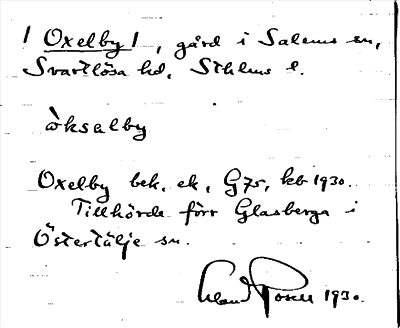 / Oxelby /, gård i Salems sn,
Svartlösa hd, Sthlms l.
ὼksalby
Oxelby bek. ek, G75, kb 1930.
Tillhörde förr Glasberga i
Östertälje sn.
1930.